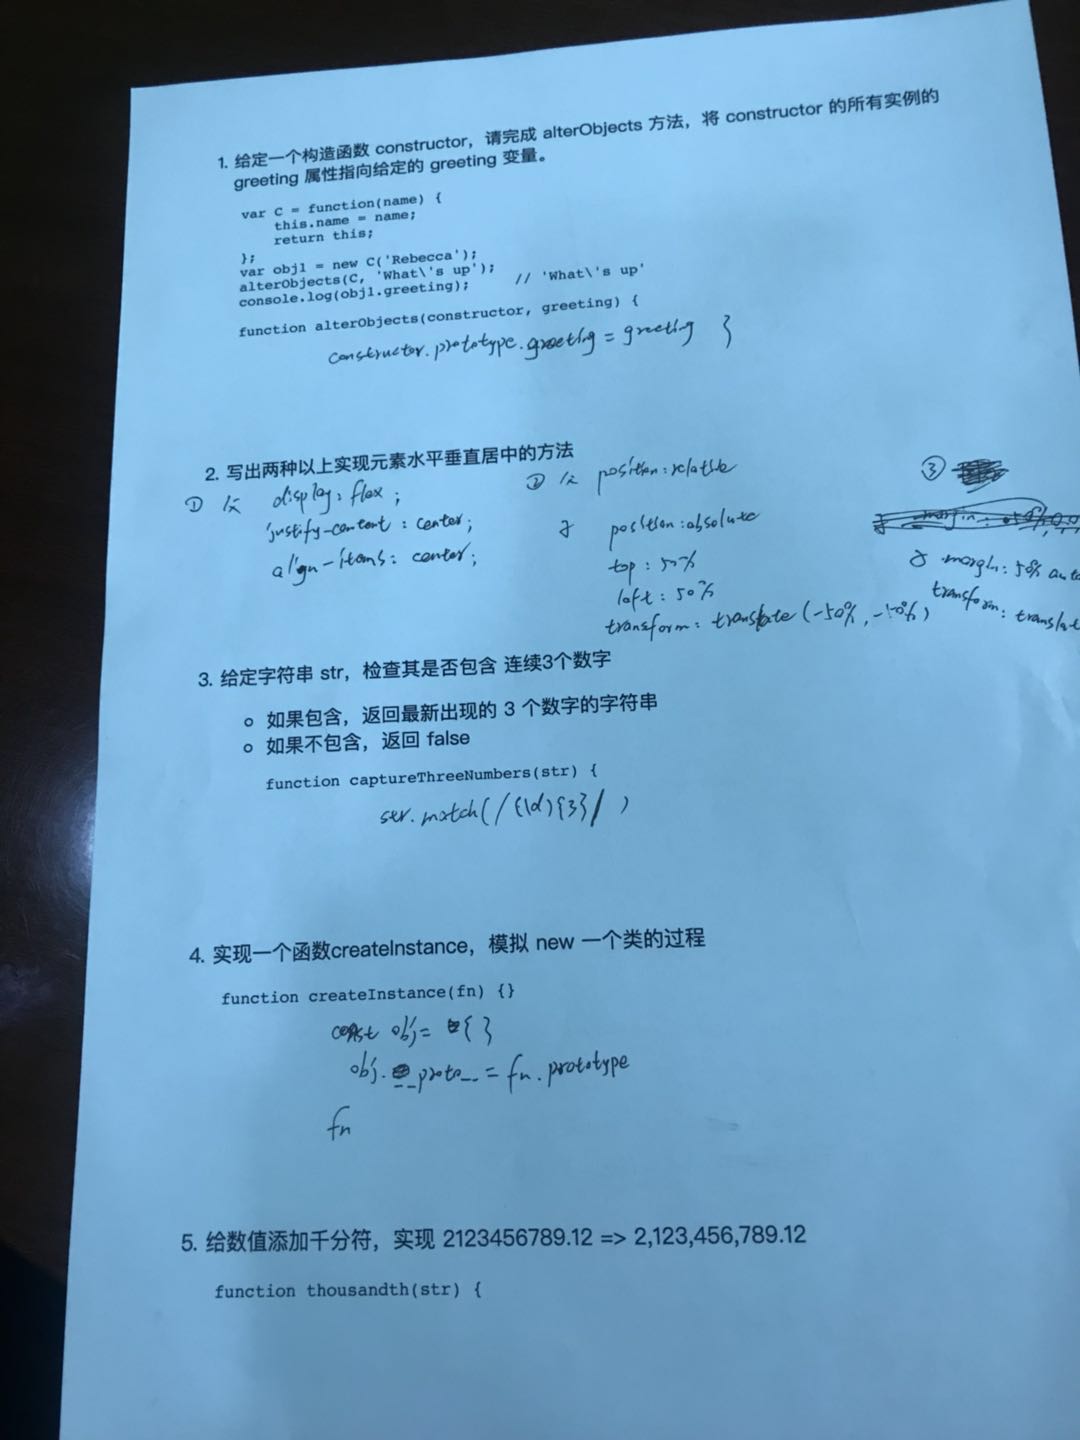 1. 给定一个构造函数 constructor，请完成 alterObjects 方法，将 constructor 的所有实例的
greeting 属性指向给定的 greeting 变量。
var C = function(name) {
this.name = name;
return this;
};
var obj1 = new C('Rebecca');
alterObjects(C, 'What\'s up');
console.log(obj1.greeting); // 'What\'s up'
function alterObjects(constructor, greeting) {
constructor.prototype.greeting = greeting }
2. 写出两种以上实现元素水平垂直居中的方法
① 父 display: flex;
justify-content: center;
align-items: center;
② 父 position:relative
子 position:absolute
top: 50%
left: 50%
transform: translate(-50%, -50%)
③
margin:
子 margin: 50% auto
transform: translat
3. 给定字符串 str，检查其是否包含 连续3个数字
如果包含，返回最新出现的 3 个数字的字符串
如果不包含，返回 false
function captureThreeNumbers(str) {
str.match(/(\d){3}/ )
4. 实现一个函数createInstance，模拟 new 一个类的过程
function createInstance(fn) {}
const obj = {}
obj.__proto__ = fn.prototype
fn
5. 给数值添加千分符，实现 2123456789.12 => 2,123,456,789.12
function thousandth(str) {